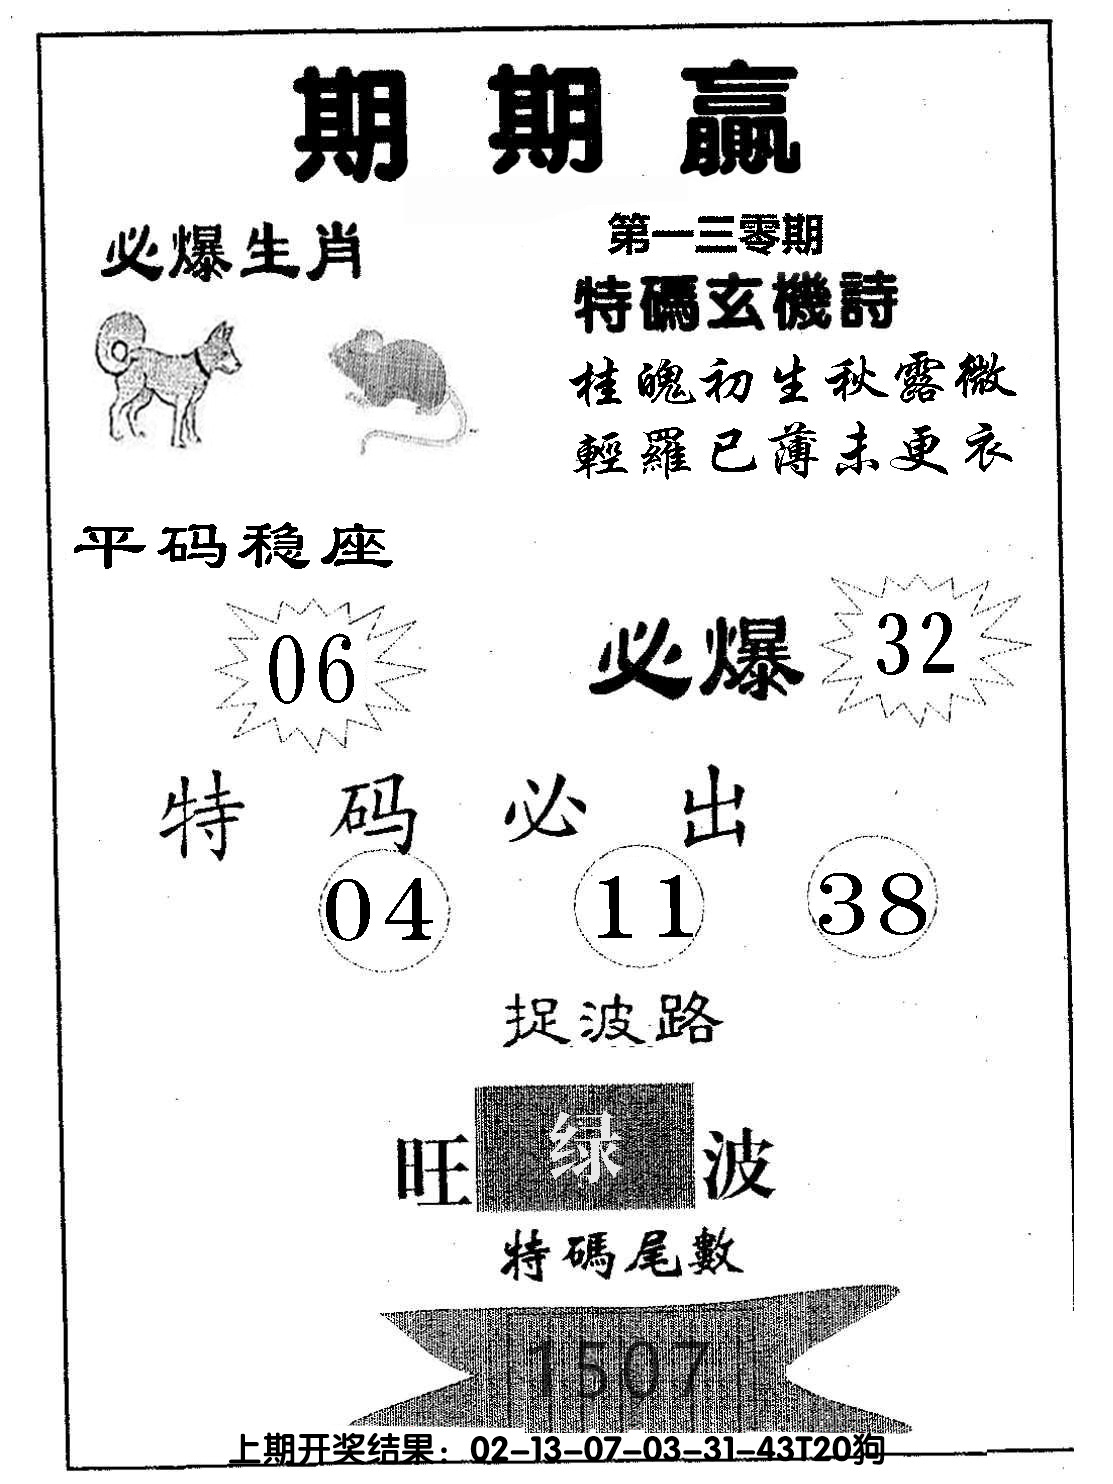 期期贏
必爆生肖
第一三零期
特碼玄機詩
桂魄初生秋露微
輕羅已薄未更衣
平码稳座
06
必爆
32
特码必出
04 11 38
捉波路
旺 绿 波
特碼尾數
1507
上期开奖结果：02-13-07-03-31-43T20狗